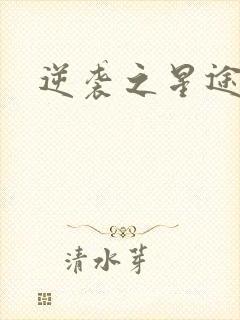 逆袭之星途
清水芽